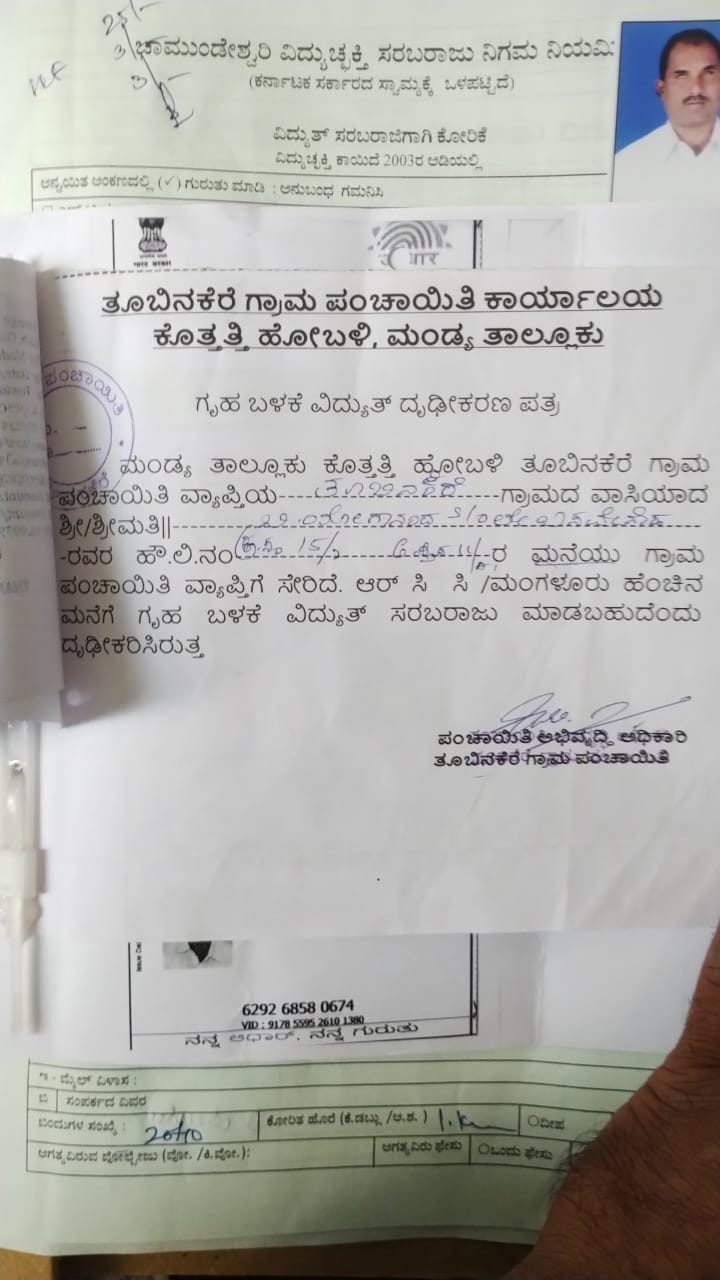 25/-
ಚಾಮುಂಡೇಶ್ವರಿ ವಿದ್ಯುಚ್ಛಕ್ತಿ ಸರಬರಾಜು ನಿಗಮ ನಿಯಮಿ
(ಕರ್ನಾಟಕ ಸರ್ಕಾರದ ಸ್ವಾಮ್ಯಕ್ಕೆ ಒಳಪಟ್ಟಿದೆ)
ವಿದ್ಯುತ್ ಸರಬರಾಜಿಗಾಗಿ ಕೋರಿಕೆ
ವಿದ್ಯುಚ್ಛಕ್ತಿ ಕಾಯಿದೆ 2003ರ ಅಡಿಯಲ್ಲಿ
ಅನ್ವಯಿತ ಅಂಕಣದಲ್ಲಿ (✓) ಗುರುತು ಮಾಡಿ : ಅನುಬಂಧ ಗಮನಿಸಿ
भारत सरकार
ತೂಬಿನಕೆರೆ ಗ್ರಾಮ ಪಂಚಾಯಿತಿ ಕಾರ್ಯಾಲಯ
ಕೊತ್ತತ್ತಿ ಹೋಬಳಿ, ಮಂಡ್ಯ ತಾಲ್ಲೂಕು
ಪಂಚಾಯಿತಿ
ಗೃಹ ಬಳಕೆ ವಿದ್ಯುತ್ ದೃಢೀಕರಣ ಪತ್ರ
ಮಂಡ್ಯ ತಾಲ್ಲೂಕು ಕೊತ್ತತ್ತಿ ಹೋಬಳಿ ತೂಬಿನಕೆರೆ ಗ್ರಾಮ
ಪಂಚಾಯಿತಿ ವ್ಯಾಪ್ತಿಯ----ತೂಬಿನಕೆರೆ----ಗ್ರಾಮದ ವಾಸಿಯಾದ
ಶ್ರೀ/ಶ್ರೀಮತಿ||----
-ರವರ ಹೌ.ಲಿ.ನಂ 15/----ರ ಮನೆಯು ಗ್ರಾಮ
ಪಂಚಾಯಿತಿ ವ್ಯಾಪ್ತಿಗೆ ಸೇರಿದೆ. ಆರ್ ಸಿ ಸಿ /ಮಂಗಳೂರು ಹೆಂಚಿನ
ಮನೆಗೆ ಗೃಹ ಬಳಕೆ ವಿದ್ಯುತ್ ಸರಬರಾಜು ಮಾಡಬಹುದೆಂದು
ದೃಢೀಕರಿಸಿರುತ್ತ
ಪಂಚಾಯಿತಿ ಅಭಿವೃದ್ದಿ ಅಧಿಕಾರಿ
ತೂಬಿನಕೆರೆ ಗ್ರಾಮ ಪಂಚಾಯಿತಿ
6292 6858 0674
VID : 9178 5595 2610 1380
ನನ್ನ ಆಧಾರ್, ನನ್ನ ಗುರುತು
ಇ - ಮೈಲ್ ವಿಳಾಸ :
ಬಿ ಸಂಪರ್ಕದ ವಿವರ
ಬಿಂದುಗಳ ಸಂಖ್ಯೆ : ಕೋರಿತ ಹೊರೆ (ಕೆ.ಡಬ್ಲು /ಅ.ಶ. ) ದೀಪ
ಅಗತ್ಯವಿರುವ ವೋಲ್ಟೇಜು (ವೋ. /ಕಿ.ವೋ.): ಅಗತ್ಯವಿರು ಫೇಸು ಒಂದು ಫೇಸು